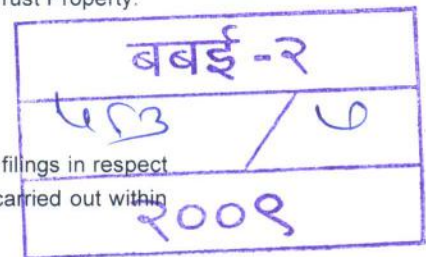 Trust Property.
बबई -२
/ ७
filings in respect
carried out within
२००९